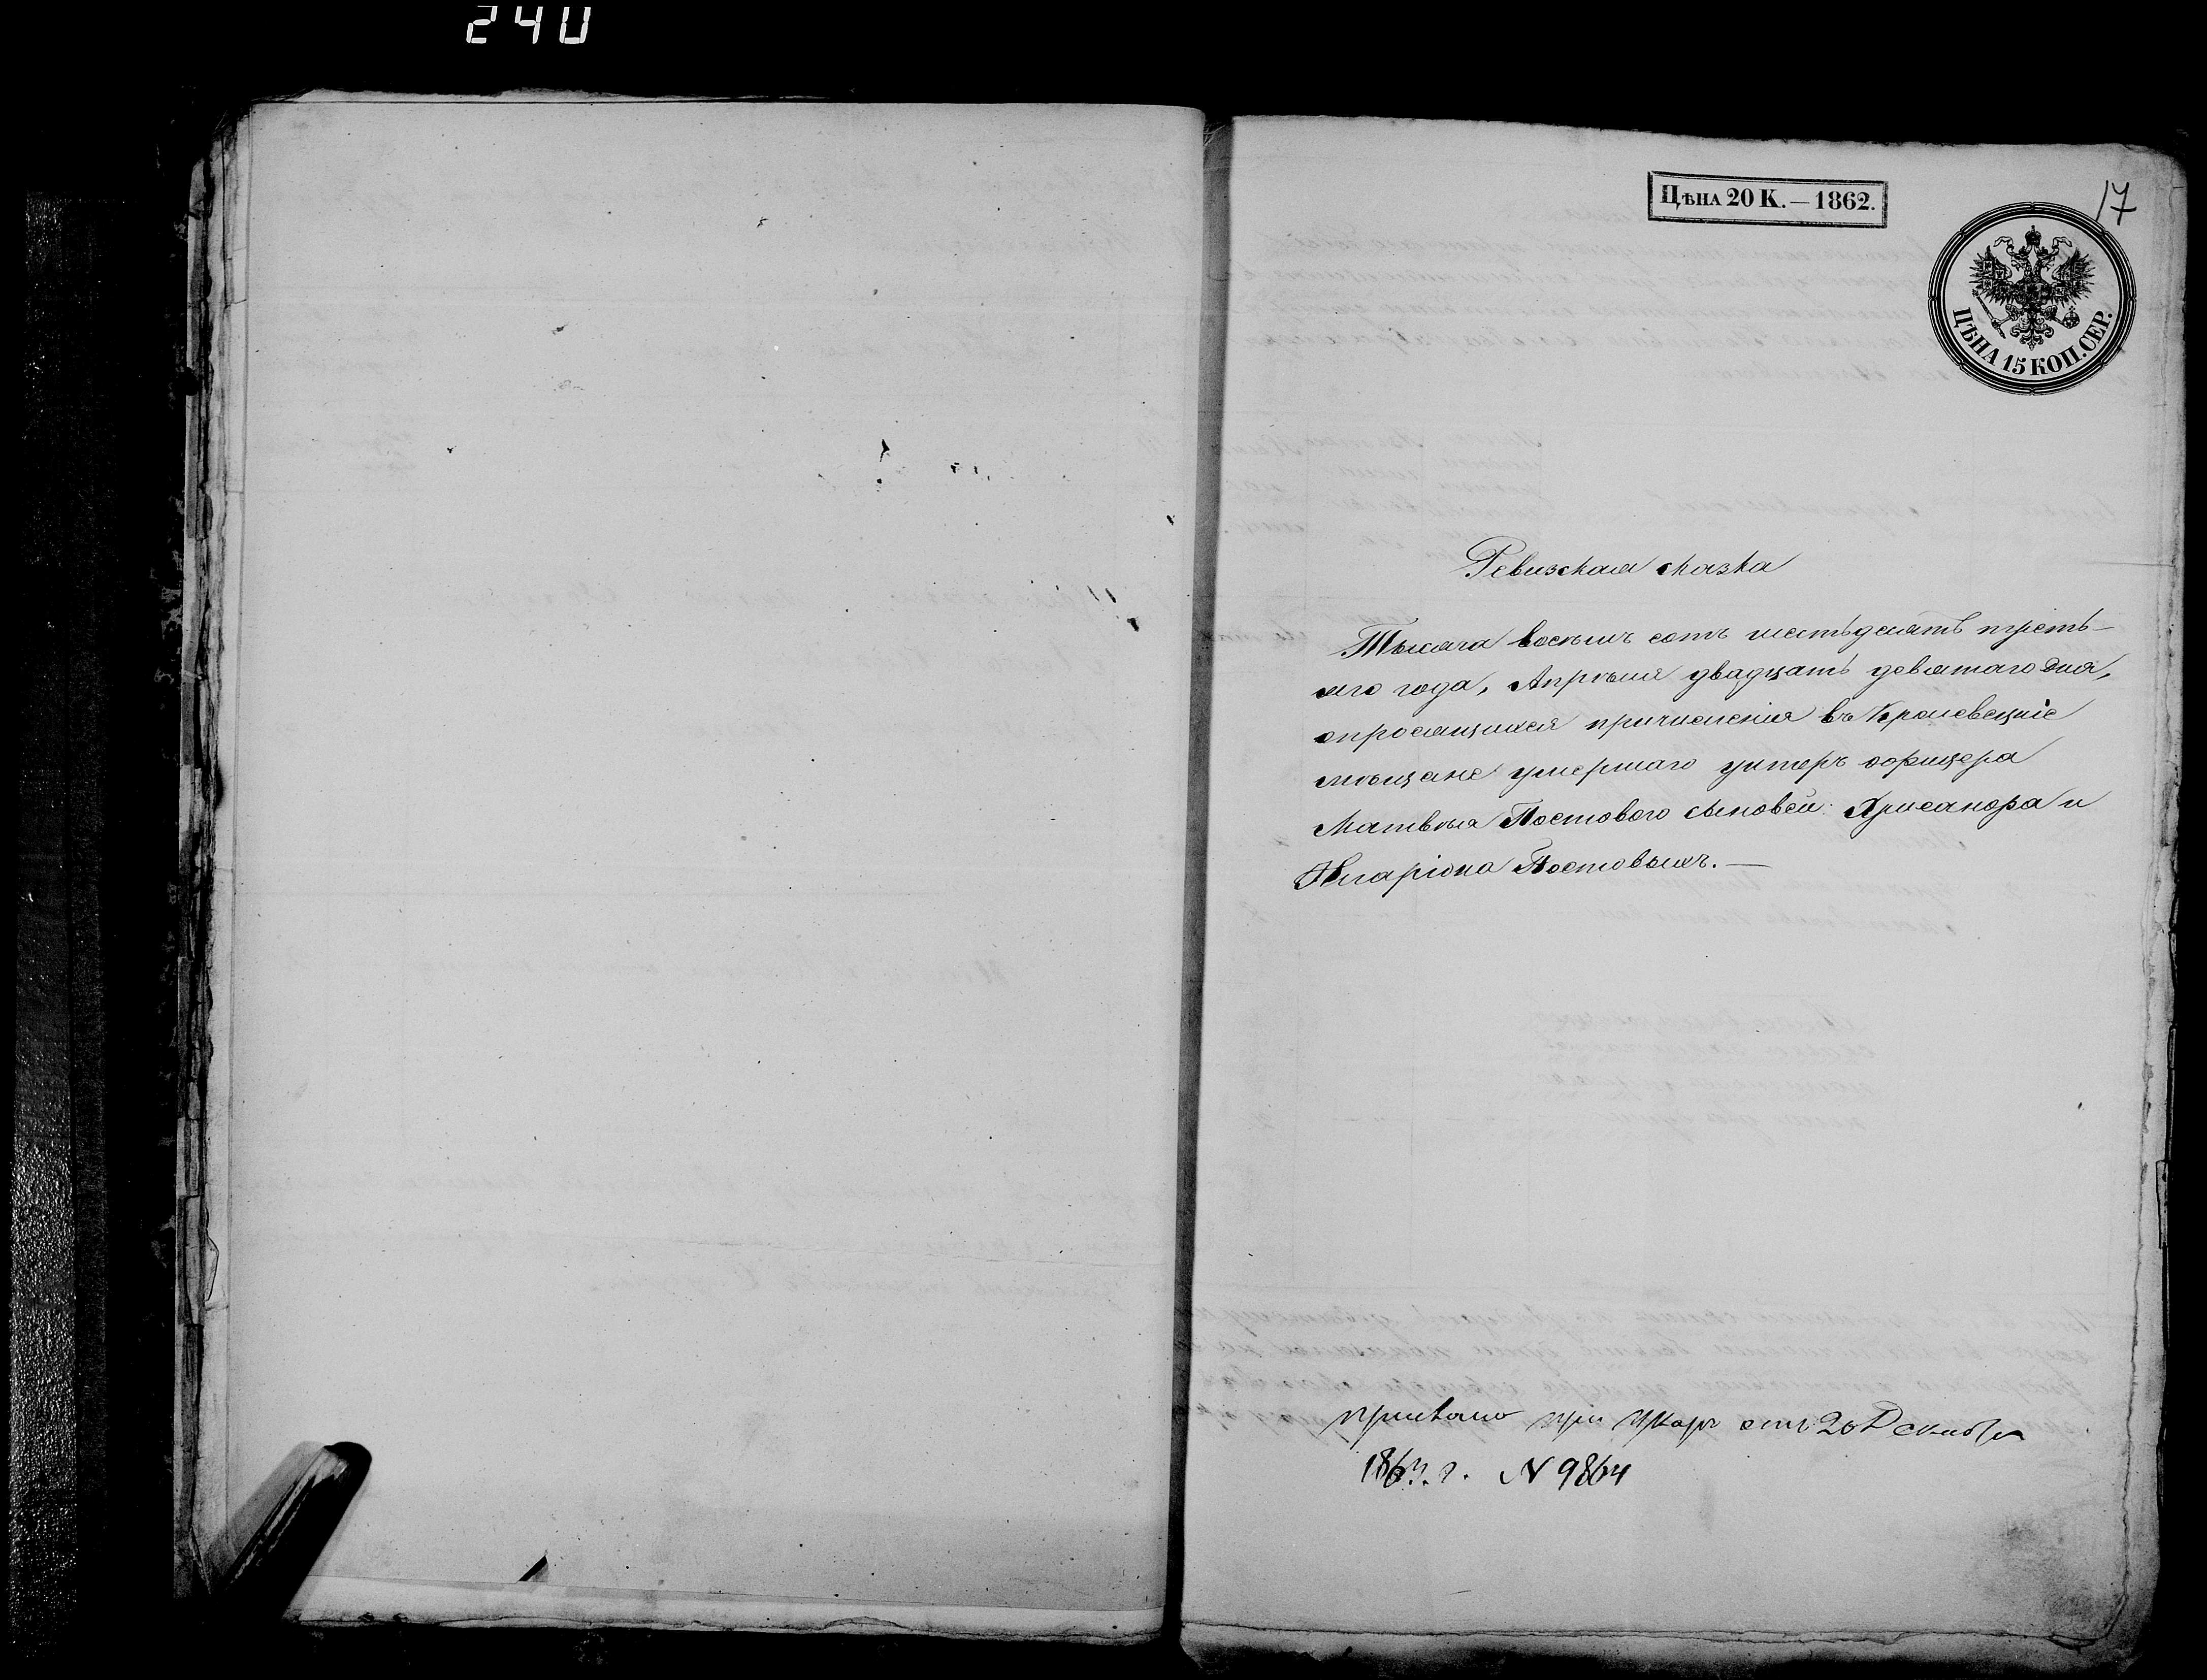 240
Цѣна 20 К. — 1862.
17
ЦѢНА 15 КОП. СЕР.
Ревизская сказка
Тысяча восемь сотъ шестьдесятъ треть-
яго года, Апрѣля двадцать девятаго дня,
опросящихся причисленія въ Кролевецкіе
мѣщане умершаго унтеръ офицера
Матвѣя Постового сыновей: Хрисанфа и
Иларіона Постовыхъ. —
при Указѣ отъ 20 Декабря
1863 г. N 9864